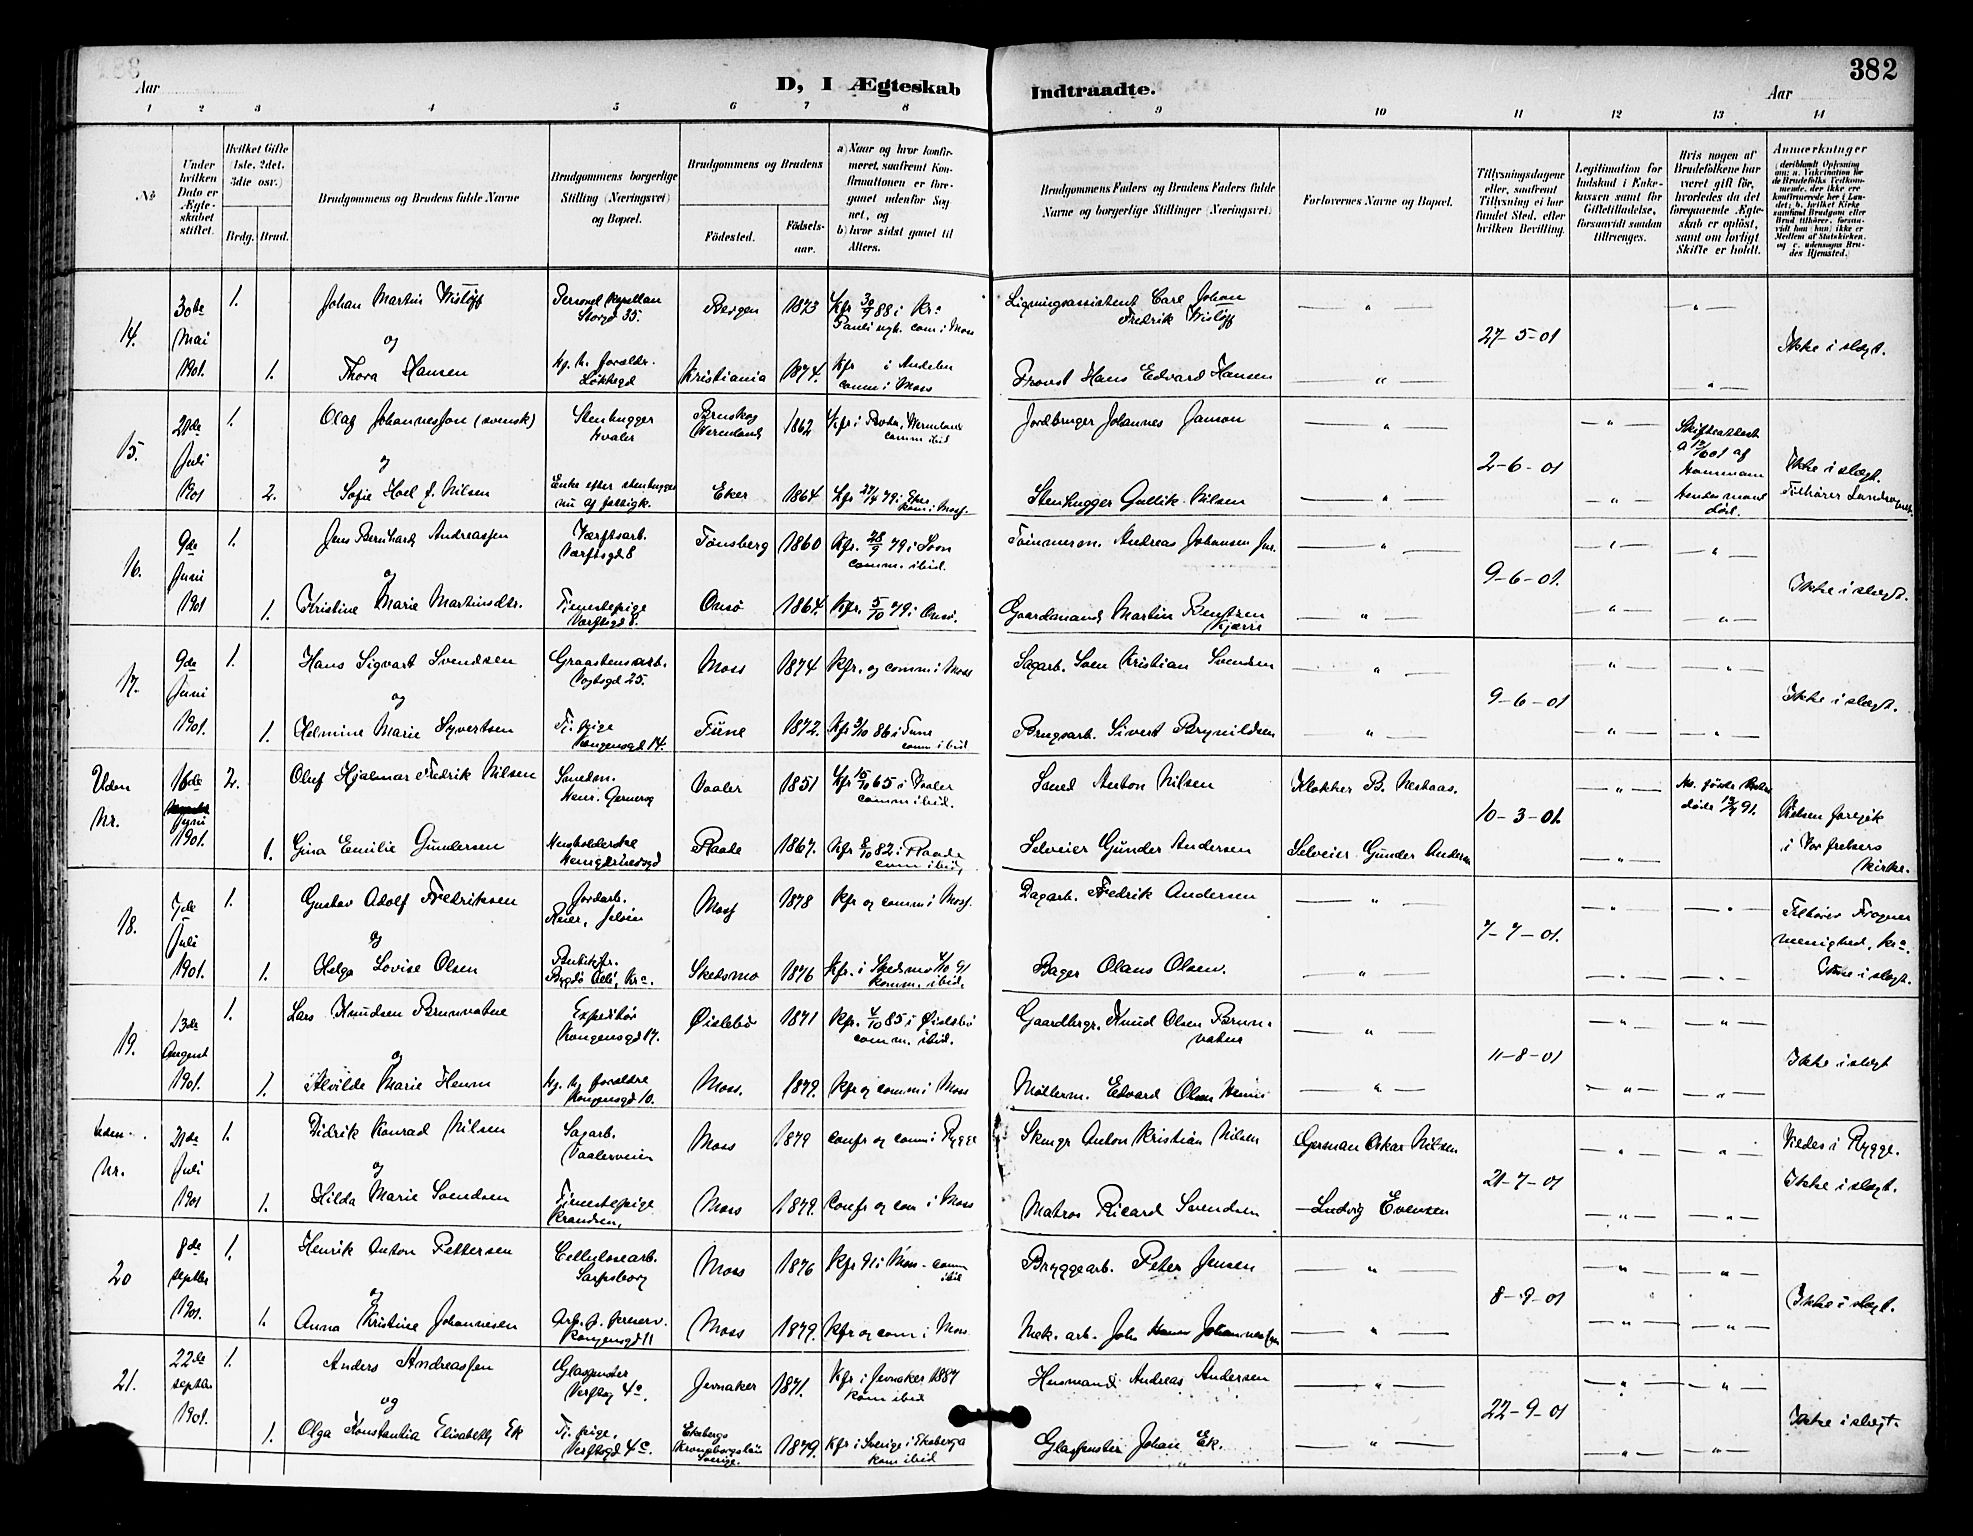 382
Aar
D, I Ægteskab
Indtraadte.
Aar
1 2 3 4 5 6 7 8 9 10 11 12 13 14
No
Under hvilken Dato er Ægteskabet stiftet.
Hvilket Gifte (1ste, 2det, 3die osv.)
Brdg. Brud.
Brudgommens og Brudens fulde Navne
Brudgommens borgerlige Stilling (Næringsvei) og Bopæl.
Brudgommens og Brudens
Fødested.
Fødsels-aar.
a) Naar og hvor konfirmeret, saafremt Konfirmationen er foregaaet udenfor Sognet, og
b) hvor sidst gaaet til Alters.
Brudgommens Faders og Brudens Faders fulde Navne og borgerlige Stillinger (Næringsvei)
Forlovernes Navne og Bopæl.
Tillysningsdagene eller, saafremt Tillysning ei har fundet Sted, efter hvilken Bevilling.
Legitimation for Indskud i Enkekassen samt for Giftetilladelse, forsaavidt saadan tiltrænges.
Hvis nogen af Brudefolkene har været gift før, hvorledes da det foregaaende Ægteskab er opløst, samt om lovligt Skifte er holdt.
Anmærkninger (deriblandt Oplysning om: a. Vakcination for de Brudefolks Vedkommende, der ikke ere konfirmerede her i Landet; b. hvilket Kirkesamfund Brudgom eller Brud tilhører, forsaavidt han (hun) ikke er Medlem af Statskirken, og c. udensogns Brudes Hjemsted.)
14. 30te Mai 1901. 1. Johan Martin Wisløff Personel Kapellan Storgd 35. Bergen 1873 Kfr 30/9 88 i Kra Pauli ugb. com i Moss Ligningsassistent Carl Johan Fredrik Wisløff 27-5-01 Ikke i slægt.
og
1. Thora Hansen hj. h. forældr. Kristiania 1874. Kfr i comm i Moss Provst Hans Edvard Hansen
15. Juli 1901 1. Olaf Johannesson (svensk) Stenhugger Hvaler Wermland 1862 Kfr i Wermland comm ibid Jordbruger Johannes 2-6-01 Skifteattest
og
2. Sofie Hoel f. Nilsen Enke efter stenhugger Eker 1864. Kfr 79 i Eker kom i Moss. Stenhugger Gullik Nilsen Ikke i slægt. Tilhører
16. 9de Juni 1901 1. Jens Bernhard Andreassen Værftsarb. Værftsgd 8 Tønsberg 1860 Kfr. 28/9 79 i Soon comm. ibid. Tømmerm. Andreas Johansen 9-6-01. Ikke i slægt.
og
1. Kristine Marie Martinsdtr. Tjenestepige Værftsgd 8. Onsø 1864. Kfr. 5/10 79 i Onsø. Gaardmand Martin Bentzen
17. 9de Juni 1901. 1. Hans Sigvart Svendsen Graastensarb. Vogtsgd 25. Moss 1874 Kfr. og comm i Moss Sagarb. Sven Kristian Svendsen 9-6-01 Ikke i slægt.
og
1. Helmine Marie Syvertsen Tj. pige Kongensgd 14. Tune 1872. Kfr 86 i Tune comm ibid Brugsarb. Sivert Brynildsen
Uden Nr. 16de Juni 1901. 2. Oluf Hjalmar Fredrik Nilsen Smedm. Vaaler 1851 Kfr 65 i Vaaler comm ibid. Smed Anton Nilsen Klokker B. Nestaas. 10-3-01. døde 91. Vielsen foregik i Vor frelsers kirke.
1. Gina Emilie Gundersen Husholderske Raade 1867. Kfr 82 i Raade com ibid, Selveier Gunder Andersen Selveier Gunder Andersen
18. 7de Juli 1901. 1. Gustav Adolf Fredriksen Jordarb. Jeløen Moss 1878 Kfr og comm i Moss. Dagarb. Fredrik Andersen 7-7-01. Tilhører Frogner menighed, Kra. Ikke i slægt.
og
1. Helga Lovise Olsen Butikfr. Bygdø Allé, Kra. Skedsmo 1876 Kfr. i Skedsmo 91 komm. ibid. Bager Olaus Olsen.
19. 13de August 1901. 1. Lars Knudsen Brunvatne Expeditør Kongensgd 17. Øislebø 1871 Kfr. 4/10 85 i Øislebø comm. ibid. Gaardbrgr. Knud Olsen Brunvatne 11-8-01 Ikke i slægt
og
1. Alvilde Marie Henm hj. hj forældre Kongensgd 10. Moss. 1879. Kfr og comm i Moss Møllerm. Edvard Olsen
Uden Nr. 21de Juli 1901 1. Didrik Konrad Nilsen Sagarb. Vaalerveien Moss 1879 confr og com i Rygge Anton Kristian Nilsen German Oskar Nilsen 21-7-01 Viedes i Rygge. Ikke i slægt.
og
1. Hilda Marie Svendsen Tjenestepige Moss 1879. Confr og com i Moss Matros Ricard Svendsen Ludvig Evensen
20 8de septbr 1901. 1. Henrik Anton Pettersen Cellulosearb. Sarpsborg Moss 1876 Kfr 91 i Moss. comm ibid Bryggearb. Peter Jensen 8-9-01 Ikke i slægt.
og
1. Anna Kristine Johannesen Kongensgd 11 Moss 1879. Kfr og com i Moss Mek. arb. Johannessen
21. 22de septbr 1901. 1. Anders Andreassen Glaspuster Verftsg 4c. Jevnaker 1871. Kfr i Jevnaker 1887 kom ibid Husmand Andreas Andersen 22-9-01 Ikke i slægt.
og
1. Olga Konstantia Elisabeth Ek Tj. pige, Verftsgd 4c. Eksberga Kronobergslän Sverige. 1879. Kfr i Sverige i Eksberga kom ibid Glaspuster Johan Ek.